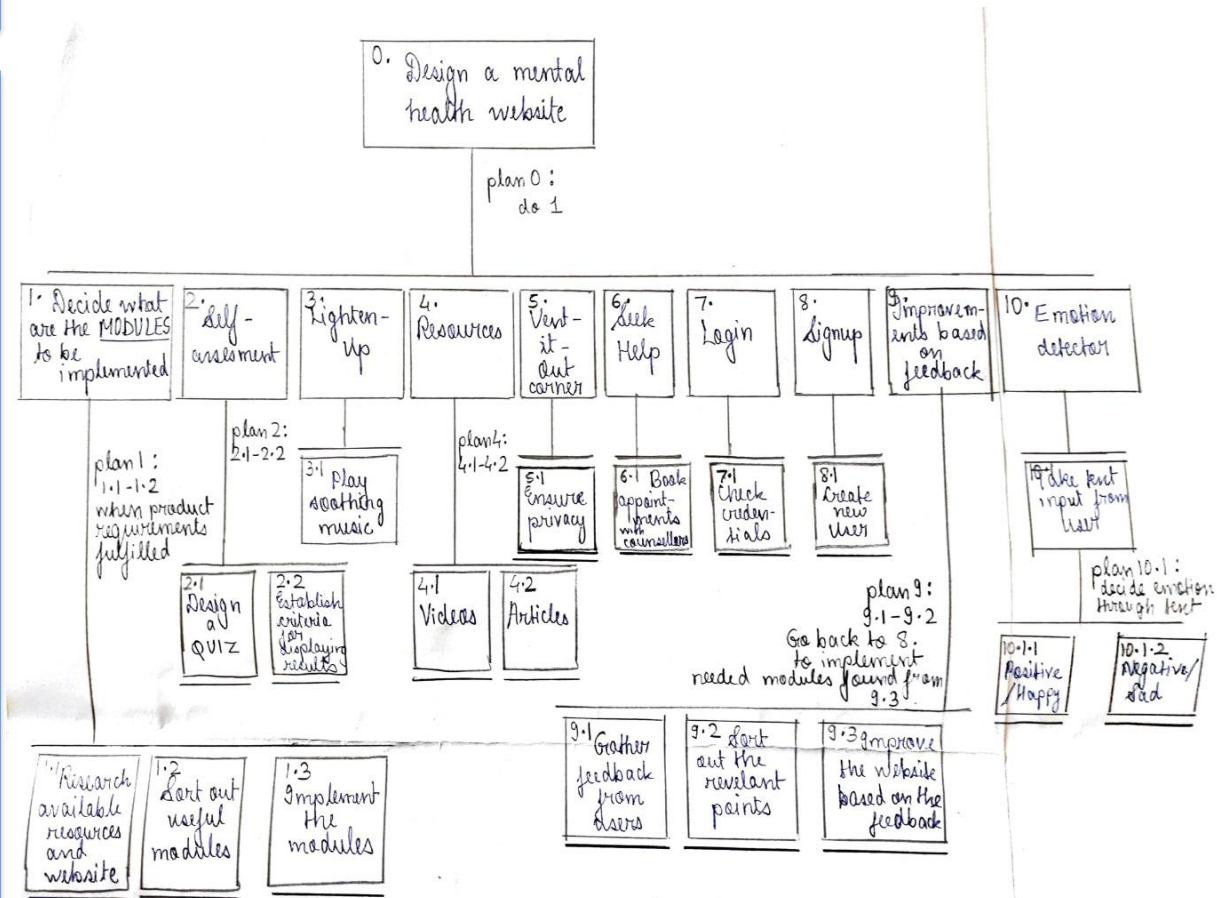 0. Design a mental
health website
plan 0:
do 1
1. Decide what
are the MODULES
to be
implemented
2. Self-
assesment
3. Lighten-
Up
4.
Resources
5.
Vent-
it-
Out
corner
6. Seek
Help
7.
Login
8.
Signup
9.
Improvem-
ents based
on
feedback
10. Emotion
detector
plan 1:
1.1-1.2
when product
requirements
fulfilled
plan 2:
2.1-2.2
3.1 Play
soothing
music
plan 4:
4.1-4.2
5.1
Ensure
privacy
6.1 Book
appoint-
ments
with
counsellors
7.1
Check
creden-
tials
8.1
Create
new
User
Take text
input from
User
2.1
Design
a
QUIZ
2.2
Establish
criteria
for
displaying
results
4.1
Videos
4.2
Articles
plan 9:
9.1-9.2
Go back to 8.
to implement
needed modules found from
9.3.
plan 10.1:
decide emotion
through text
10.1.1
Positive
/Happy
10.1.2
Negative/
Sad
1.1 Research
available
resources
and
website
1.2
Sort out
useful
modules
1.3
Implement
the
modules
9.1
Gather
feedback
from
Users
9.2 Sort
out the
revelant
points
9.3 Improve
the website
based on the
feedback